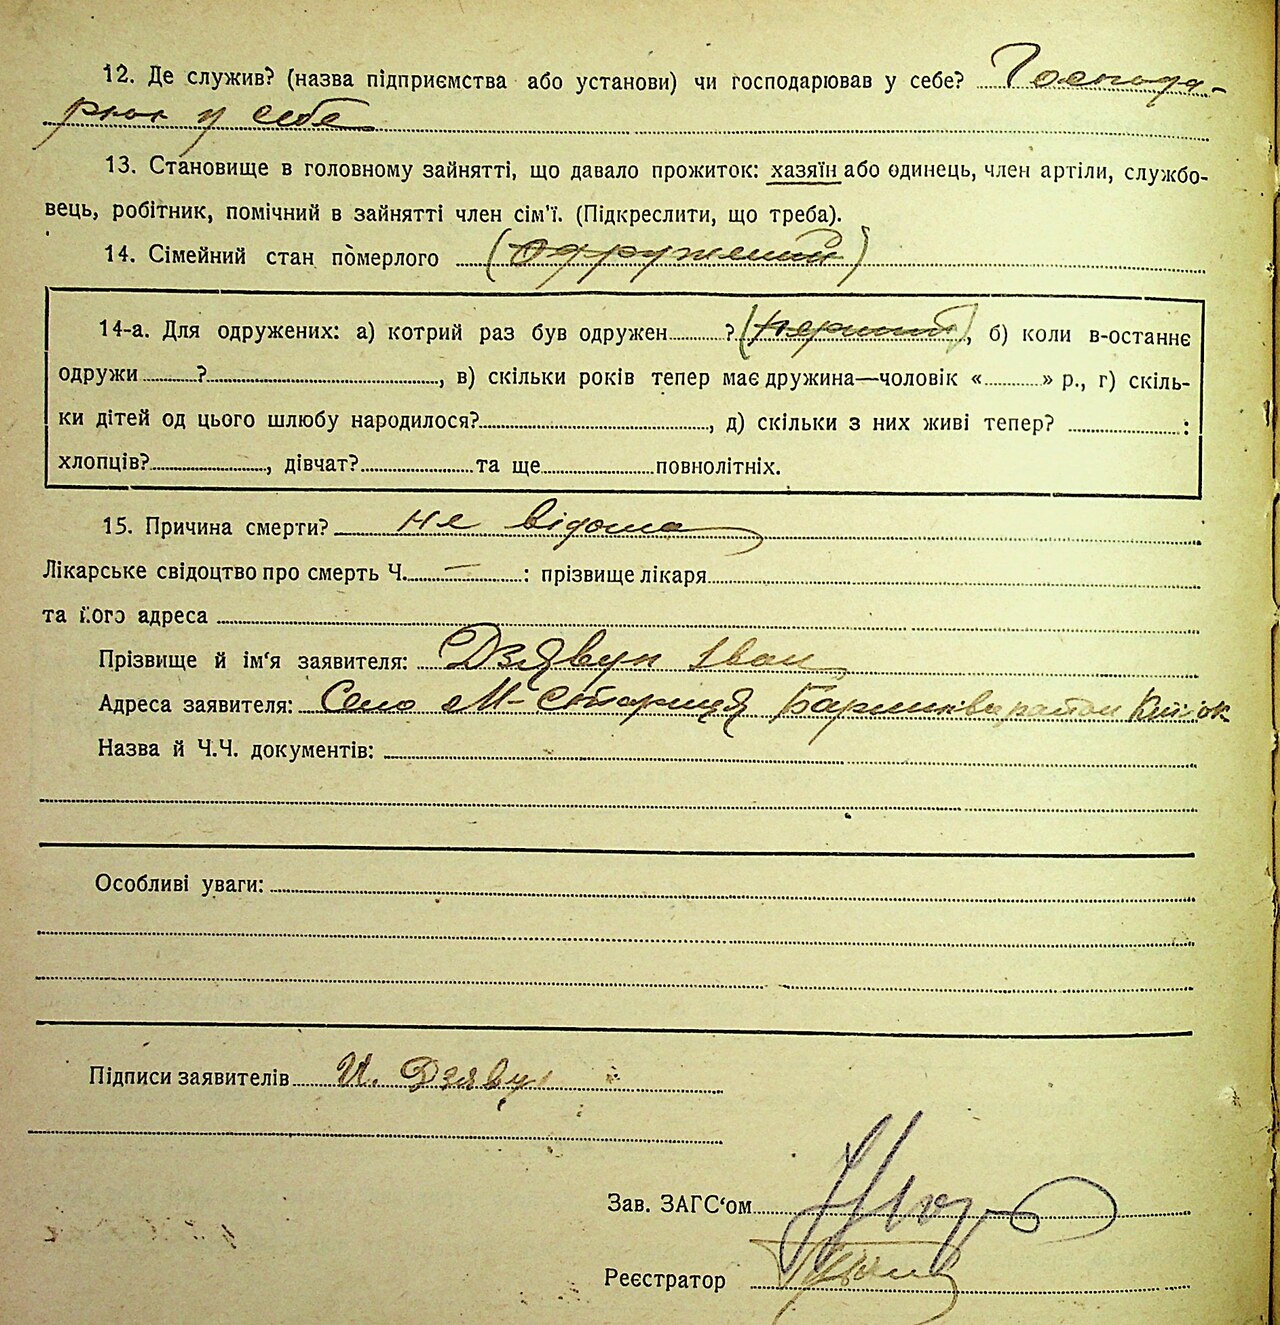 12. Де служив? (назва підприємства або установи) чи господарював у себе? Господа-
рюв у себе
13. Становище в головному зайнятті, що давало прожиток: хазяїн або одинець, член артіли, службо-
вець, робітник, помічний в зайнятті член сім'ї. (Підкреслити, що треба).
14. Сімейний стан померлого (одружений)
14-а. Для одружених: а) котрий раз був одружен ? (перший), б) коли в-останнє
одружи ? , в) скільки років тепер має дружина—чоловік « » р., г) скіль-
ки дітей од цього шлюбу народилося? , д) скільки з них живі тепер? :
хлопців? , дівчат? та ще повнолітніх.
15. Причина смерти? не відома
Лікарське свідоцтво про смерть Ч. — : прізвище лікаря
та його адреса
Прізвище й ім'я заявителя: Дзявун Іван
Адреса заявителя: Село М-Стариця Баришків район
Назва й Ч.Ч. документів:
Особливі уваги:
Підписи заявителів И. Дзяву
Зав. ЗАГС'ом
Реєстратор